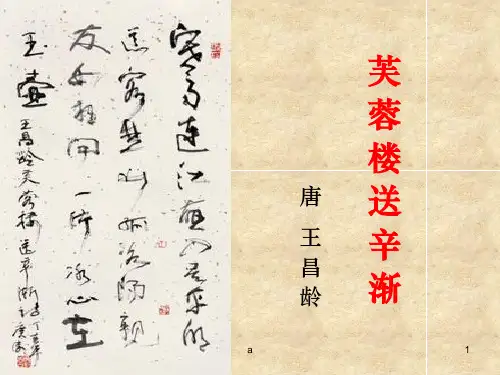 芙蓉楼送辛渐
唐 王昌龄
寒雨連江夜入吴平明
送客楚山孤洛陽親
友如相问一片冰心在
玉壶 王昌龄芙蓉楼送辛渐
a
1